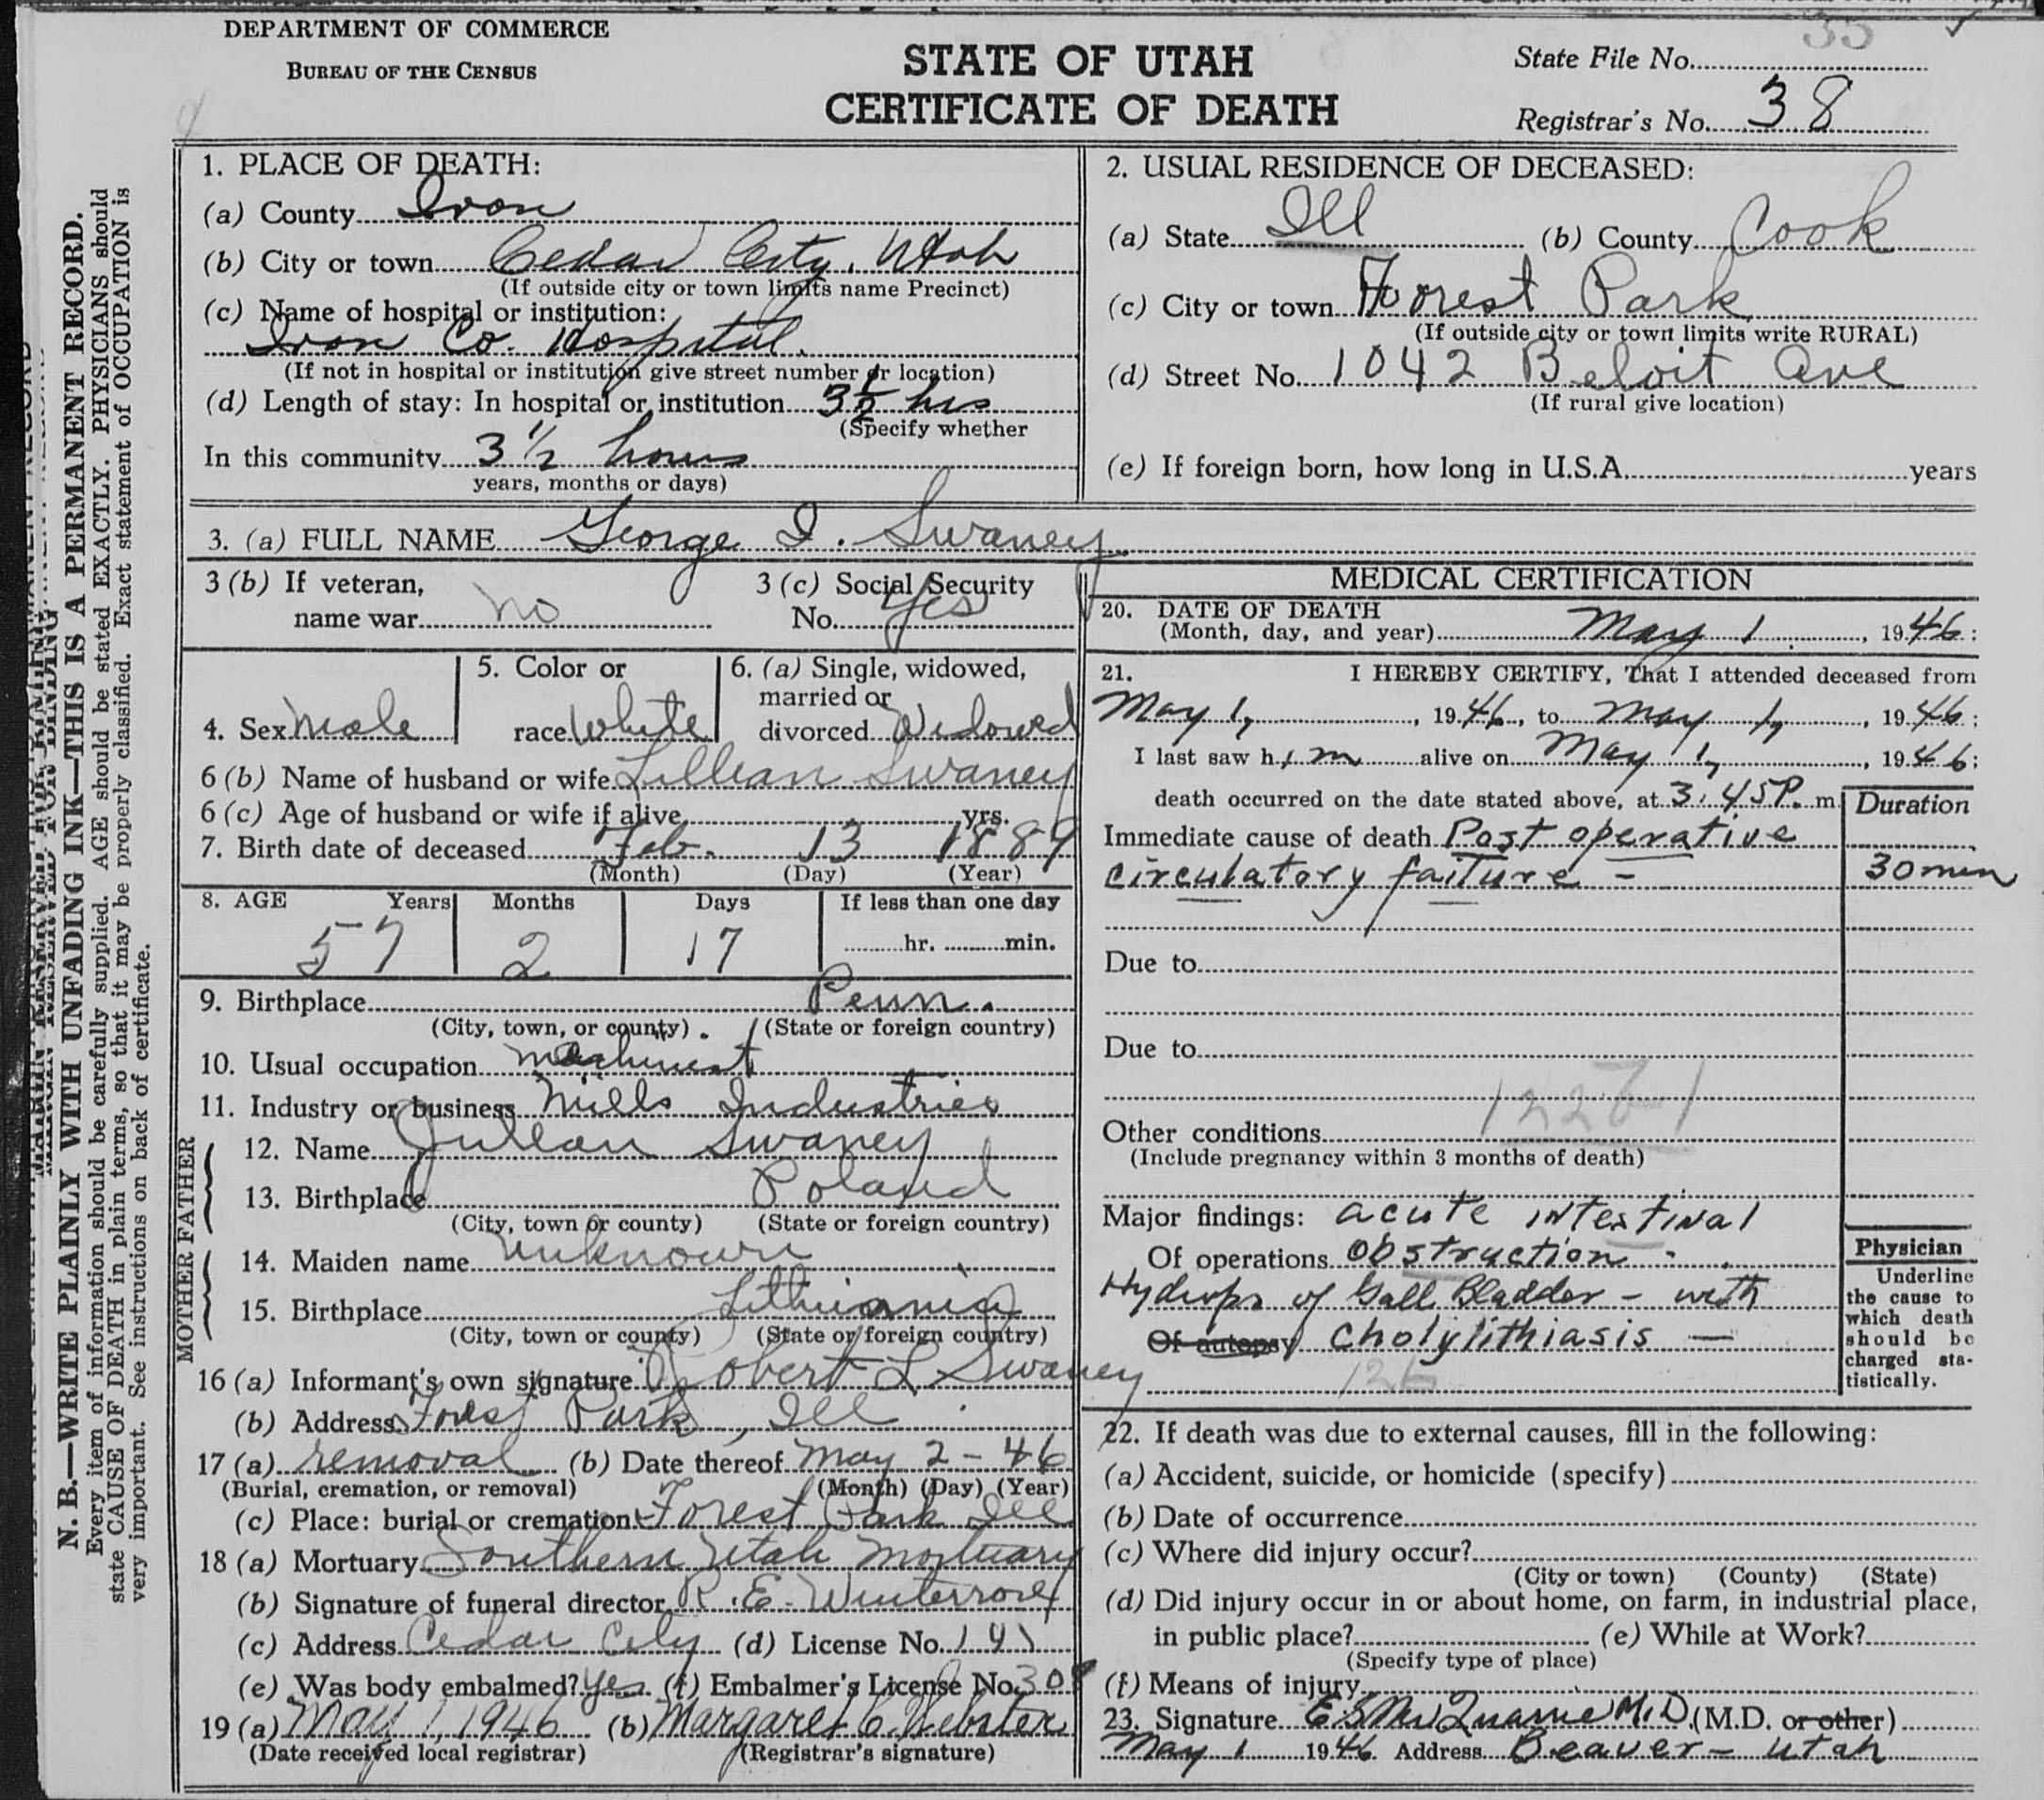 DEPARTMENT OF COMMERCE
BUREAU OF THE CENSUS
STATE OF UTAH
CERTIFICATE OF DEATH
State File No. 35
Registrar's No. 38
N. B.—WRITE PLAINLY WITH UNFADING INK—THIS IS A PERMANENT RECORD.
Every item of information should be carefully supplied. AGE should be stated EXACTLY. PHYSICIANS should
state CAUSE OF DEATH in plain terms, so that it may be properly classified. Exact statement of OCCUPATION is
very important. See instructions on back of certificate.
1. PLACE OF DEATH:
(a) County Iron
(b) City or town Cedar City, Utah
(If outside city or town limits name Precinct)
(c) Name of hospital or institution:
Iron Co. Hospital.
(If not in hospital or institution give street number or location)
(d) Length of stay: In hospital or institution 3½ hrs
(Specify whether
In this community 3½ hours
years, months or days)
2. USUAL RESIDENCE OF DECEASED:
(a) State Ill (b) County Cook
(c) City or town Forest Park
(If outside city or town limits write RURAL)
(d) Street No. 1042 Beloit Ave
(If rural give location)
(e) If foreign born, how long in U.S.A. years
3. (a) FULL NAME George I. Swaney
3 (b) If veteran,
name war no
3 (c) Social Security
No. yes
4. Sex Male
5. Color or
race White
6. (a) Single, widowed,
married or
divorced Widowed
6 (b) Name of husband or wife Lillian Swaney
6 (c) Age of husband or wife if alive yrs.
7. Birth date of deceased Feb. 13 1889
(Month) (Day) (Year)
8. AGE Years Months Days If less than one day
57 2 17 hr. min.
9. Birthplace Penn.
(City, town, or county) (State or foreign country)
10. Usual occupation machinist
11. Industry or business Mills Industries
FATHER
12. Name Julian Swaney
13. Birthplace Poland
(City, town or county) (State or foreign country)
MOTHER
14. Maiden name unknown
15. Birthplace Lithuania
(City, town or county) (State or foreign country)
16 (a) Informant's own signature Robert L Swaney
(b) Address Forest Park, Ill
17 (a) removal (b) Date thereof May 2 - 46
(Burial, cremation, or removal) (Month) (Day) (Year)
(c) Place: burial or cremation Forest Park Ill
18 (a) Mortuary Southern Utah Mortuary
(b) Signature of funeral director R. E. Winterrose
(c) Address Cedar City (d) License No. 141
(e) Was body embalmed? yes (f) Embalmer's License No. 308
19 (a) May 1, 1946 (b) Margaret C. Webster
(Date received local registrar) (Registrar's signature)
MEDICAL CERTIFICATION
20. DATE OF DEATH
(Month, day, and year) May 1, 1946:
21. I HEREBY CERTIFY, That I attended deceased from
May 1, 1946, to May 1, 1946;
I last saw him alive on May 1, 1946;
death occurred on the date stated above, at 3:45 P. m.
Duration
Immediate cause of death Post operative
circulatory failure – 30 min
Due to
Due to
Other conditions
(Include pregnancy within 3 months of death)
Major findings: acute intestinal
Of operations obstruction -
Hydrops of Gall Bladder – with
Of autopsy Cholylithiasis —
Physician
Underline
the cause to
which death
should be
charged sta-
tistically.
22. If death was due to external causes, fill in the following:
(a) Accident, suicide, or homicide (specify)
(b) Date of occurrence
(c) Where did injury occur?
(City or town) (County) (State)
(d) Did injury occur in or about home, on farm, in industrial place,
in public place? (e) While at Work?
(Specify type of place)
(f) Means of injury
23. Signature M.D. (M.D. or other)
May 1 1946 Address Beaver – Utah